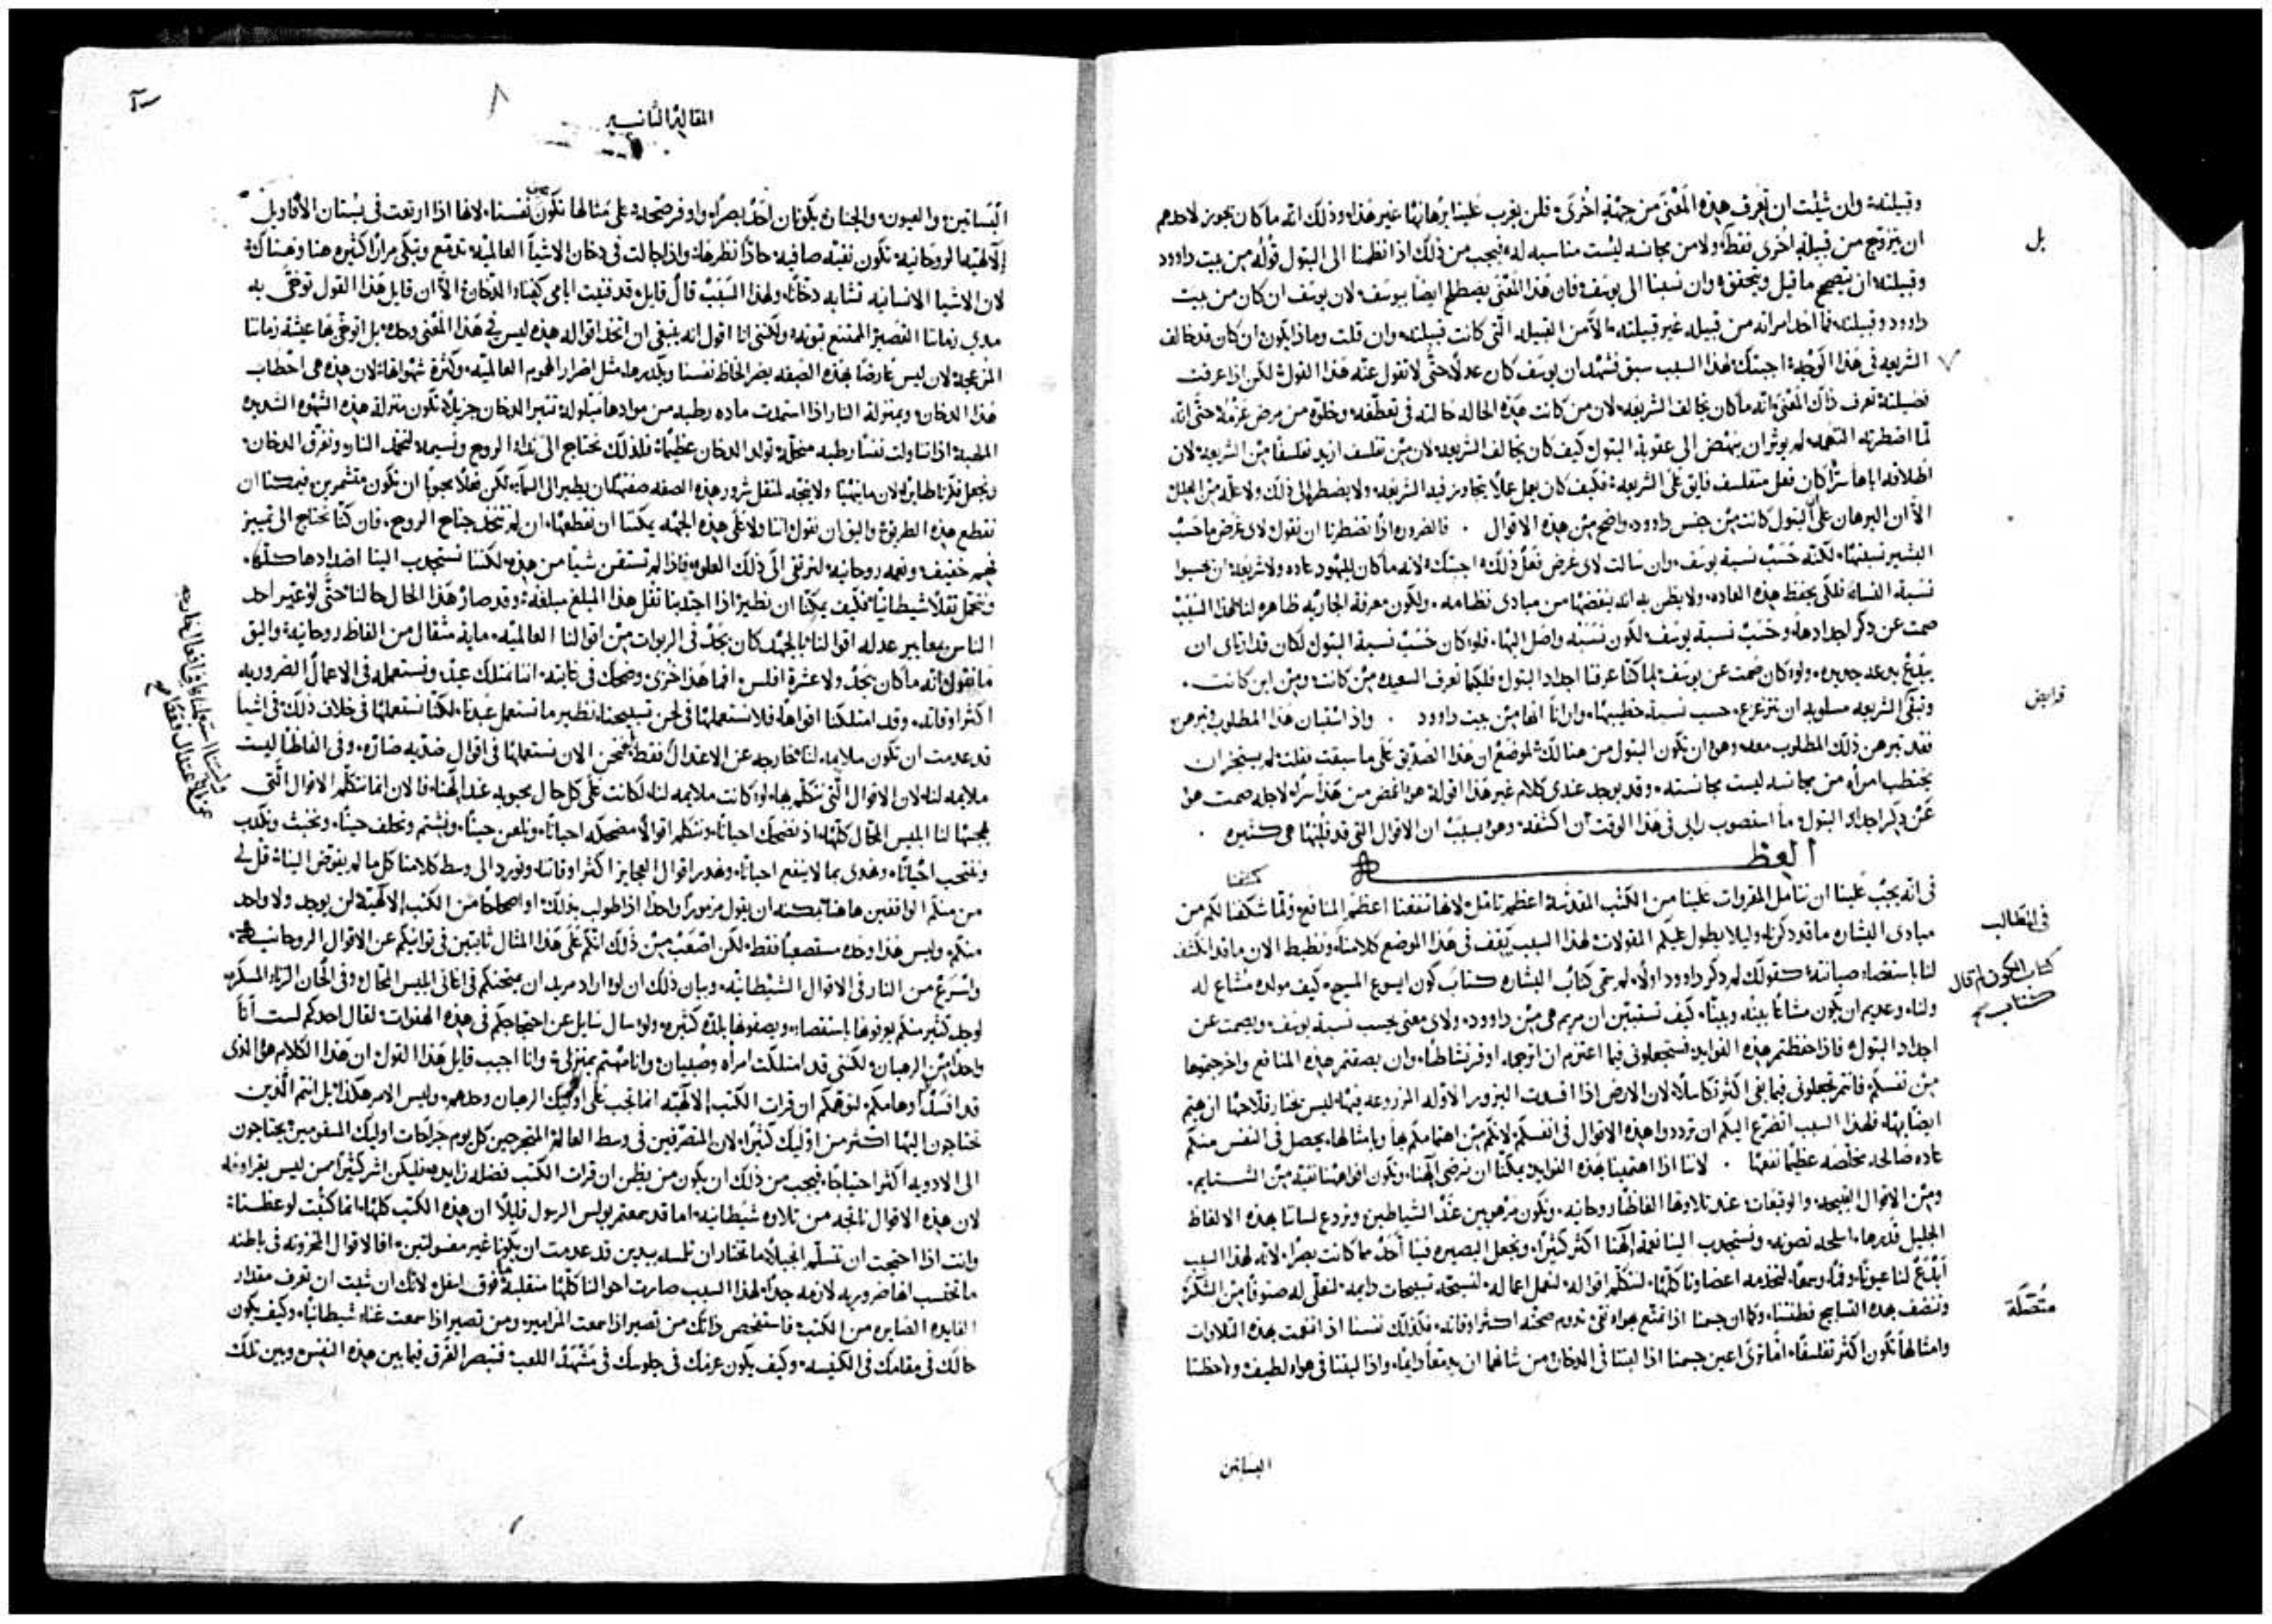 وقبيلته وان شيت ان تعرف هذه المعنى من جهة اخرى فلن يغرب علينا برهانها غير هذا وذلك انه ما كان يجوز لاحدهم
ان يتزوج من قبيله اخرى فقط ولا من مجانسه ليست مناسبه له فيجب من ذلك اذا نظمنا الى البتول قوله من بيت داوود
وقبيلته ان يتصحح ما قيل ويتحقق وان نسبنا الى يوسف فان هذا المعنى يصطلح ايضا بيوسف لان يوسف ان كان من بيت
داوود وقبيلته فما اخذ امراته من قبيله غير قبيلته الا من القبيله التى كانت قبيلته وان قلت وماذا يكون ان كان قد خالف
الشريعه فى هذا الوجه اجبتك لهذا السبب سبق فشهد ان يوسف كان عدلا حتى لا تقول عنه هذا القول لكن اذا عرفت
فضيلته تعرف ذاك المعنى انه ما كان يخالف الشريعه لان من كانت هذه الحاله حالته فى تعطفه وخلوه من مرض عزمه حتى انه
لما اضطرته التهمه لم يوثر ان ينهض الى عقوبة البتول كيف كان يخالف الشريعه لان من تفلسف ازيد تفلسفا من الشريعه لان
اطلاقه اياها سرا كان فعل متفلسف فايق على الشريعه فكيف كان يعمل عملا يتجاوز فيه الشريعه ولا يضطره الى ذلك ولا عله من العلل
الا ان البرهان على البتول كانت من جنس داوود واضح من هذه الاقوال . فالضروره اذا تضطرنا ان نقول لاى غرض ما حسب
البشير نسبتها لكنه حسب نسبة يوسف وان سالت لاى غرض فعل ذلك اجبتك لانه ما كان لليهود عاده ولا شريعه ان يحسبوا
نسبة النساء فلكى يحفظ هذه العاده ولا يظن به انه ينقضها من مبادى نظامه ولكون معرفة الجاريه ظاهره لنا لهذا السبب
صمت عن ذكر اجدادها وحسب نسبة يوسف
وتبقى الشريعه مسلوبه ان تتزعزع حسب نسبة خطيبها وارانا انها من بيت داوود . واذ استبان هذا المطلوب وتبرهن
فقد تبرهن ذلك المطلوب معه وهو ان تكون البتول من هنالك لموضع ان هذا الصديق على ما سبقت فقلت لم يستجز ان
يختطب امراه من مجانسه ليست مجانسته وقد يوجد عندى كلام غير هذا اقوله هو اغمض من هذا سرا لاجله صمت هو
عن ذكر اجداد البتول ما استصوب رايى فى هذا الوقت ان اكشفه وهو بسبب ان الاقوال التى قد قلتها هى كثيره .
العظـــه
فى انه يجب علينا ان نتامل المقروات علينا من الكتب المقدسة اعظم تامل لانها تنفعنا اعظم المنافع
مبادى البشاره ما قد ذكرناه وليلا يطول عليكم المقولات لهذا السبب نقف فى هذا الموضع كلامنا ونضبط الان ما قد انكشف
لنا باستقصاء صيانته كقولك لم ذكر داوود اولا لم سمى كتاب البشاره كتاب كون ايسوع المسيح كيف مولده مشاع له
ولنا وعديم ان يكون مشاعا بينه وبيننا كيف تستبين ان مريم هى من داوود ولاى معنى يحسب نسبة يوسف ويصمت عن
اجداد البتول فاذا حفظتم هذه الفوايد فستجعلونى فيما اعتزم ان اتوجه اوفر نشاطا وان بصقتم هذه المنافع واخرجتموها
من نفسكم فانتم تجعلونى فيما بقى اكثر تكاسلا لان الارض اذا افسدت البزور الاوله المزروعه فيها ليس يختار فلاحها ان يهتم
ايضا بها فلهذا السبب اتضرع اليكم ان ترددوا هذه الاقوال فى انفسكم لانكم من اهتمامكم بها وبامثالها يحصل فى النفس منكم
عاده صالحه مخلصه عظيما نفعها . لاننا اذا اهتممنا بهذه الفوايد يمكننا ان نرضى الهنا وتكون افواهنا نقيه من الشتايم
ومن الاقوال القبيحه والوقيعات عند تلاوتها الفاظا روحانيه ونكون مرهوبين عند الشياطين ونردع لساننا بهذه الالفاظ
ابدع لنا عيونا وفما وسمعا لتخدمه اعضاونا كلها لنتكلم اقواله لنعمل اعماله لنسبحه تسبيحات دايمه لنعلى له صنوفا من الشكر
وننضف بهذه التسابيح فطنتنا وكما ان جسمنا اذا تمتع بهواء نقى تدوم صحته اكثر اوقاته فكذلك نفسنا اذا انتعت بهذه التلاوات
وامثالها تكون اكثر تفلسفا افما ترى اعين جسمنا اذا لبثنا فى الدخان من شانهما ان يدمعا دايما واذا لبثنا فى هواء لطيف ولاحظنا
البساتين
بل
قرايض
فى المطالب
كتاب الكون لم قال
كتاب
متصلة
المقالة الثانيه
٨
البساتين والعيون والجنان يكونان احد بصرا واوفر صحه وعلى مثالها تكون عين نفسنا لانها اذا ارتعت فى بستان الاقاويل
الالهيه الروحانيه تكون نقيه صافيه حادا نظرها واذا جالت فى دخان الاشيا العالميه تدمع وتبكى مرارا كثيره هنا وهناك
لان الاشيا الانسانيه تشابه دخانا ولهذا السبب قال قايل قد فنيت ايامى كفناء الدخان الا ان قايل هذا القول توخى به
مدى زماننا القصير الممتنع ثبوته ولكننى انا اقول انه ينبغى ان نتخذ اقواله هذه ليس فى هذا المعنى وحده بل اتوخى بها عيشة زماننا
المزعجه لان ليس عارضا بهذه الصفه يضر الحاظ نفسنا ويكدرها مثل اضرار الهموم العالميه وكثرة شهواتها لان هذه هى احطاب
هذا الدخان وبمنزلة النار اذا استمدت ماده رطبه من موادها مبلوله تثير الدخان جزيلا تكون منزلة هذه الشهوه الشديده
الملهبة اذا تناولت نفسا رطبه منحله تولد الدخان عظيما فلذلك نحتاج الى نداء الروح ونسيمه لنخمد النار ونفرق الدخان
نقطع هذه الطريق واليق ان نقول اننا ولا على هذه الجهه يمكننا ان نقطعها ان لم نتخذ جناح الروح فان كنا نحتاج الى تمييز
خفيف ونعمه روحانيه لنرتقى الى ذلك العلو فاذا لم نستقن شيا من هذه لكننا نستجذب الينا اضدادها كلها
ونحمل ثقلا شيطانيا فكيف يمكننا ان نطير اذا اجتذبنا ثقل هذا المبلغ مبلغه وقد صار هذا الحال حالنا حتى لو عير احد
الناس بمعايير عدله اقوالنا بالجهد كان يجد فى الربوات من اقوالنا العالميه ماية مثقال من الفاظ روحانيه واليق
ما نقول انه ما كان يجد ولا عشرة افلس افما هذا خزى وضحك فى غايته اننا نمتلك عبدا ونستعمله فى الاعمال الضروريه
اكثر اوقاته وقد امتلكنا افواها فلا نستعملها فى لحن تسبيحنا نظير ما نستعمل عبدنا لكننا نستعملها فى خلاف ذلك فى اشيا
قد عدمت ان تكون ملايمه لنا خارجه عن الاعتدال فقط فنحن الان نستعملها فى اقوال ضديه ضاره وفى الفاظنا ليست
ملايمه لنا لان الاقوال التى نتكلم بها لو كانت ملايمه لنا لكانت على كل حال محبوبه عند الهنا فالان انما نتكلم الاقوال التى
يلهجها لنا ابليس المحال كلها اذ نضحك احيانا ونتكلم اقوالا مضحكه احيانا ونلعن حينا ونشتم ونحلف حينا ونخبث ونكذب
وننتحب احيانا ونهدى بما لا ينفع احيانا ونهدر اقوال العجايز اكثر اوقاتنا ونورد الى وسط كلامنا كل ما لم يفوض الينا قل لى
من منكم الواقفين هاهنا يمكنه ان يقول مزمورا واحدا اذا طولب بذلك او اصحاحا من الكتب الالهيه لن يوجد ولا واحد
منكم وليس هذا وحده مستصعبا فقط لكن اصعب من ذلك انكم على هذا المثال ثابتين فى توانيكم عن الاقوال الروحانيه
واسرع من النار فى الاقوال الشيطانيه وبيان ذلك ان لو اراد مريد ان يمتحنكم فى اغانى ابليس المحال وفى الحان الزناء المسكره
لوجد كثير منكم يعرفوها باستقصاء ويصفوها بلذه كثيره ولو سال سايل عن احتجاجكم فى هذه الهفوات لقال احدكم لست انا
واحدا من الرهبان لكننى قد امتلكت امراه وصبيان وانا مهتم بمنزلى وانا اجيب قايل هذا القول ان هذا الكلام هو الذى
قد افسد اوهامكم لتوهمكم ان قرات الكتب الالهيه انما تجب على اوليك الرهبان وحدهم وليس الامر هكذا بل انتم الذين
تحتاجون اليها اكثر من اوليك كثيرا لان المتصرفين فى وسط العالم المتجرحين كل يوم جراحات اوليك السقومين يحتاجون
الى الادويه اكثر احتياجا فيجب من ذلك ان يكون من يظن ان قرات الكتب فضله زايده فليكن اشر كثيرا ممن ليس يقراوها
لان هذه الاقوال ناتجه من تلاوه شيطانيه اما قد سمعتم بولس الرسول قايلا ان هذه الكتب كلها انما كتبت لوعظنا
وانت اذا احتجت ان تتسلم انجيلا ما تختار ان تلمسه بيدين قد عدمت ان يكونا غير مغسولتين افما الاقوال المخزونه فى باطنه
ما تحتسب انها ضروريه لازمه جدا لهذا السبب صارت احوالنا كلها منقلبه فوق اسفل لانك ان شيت ان تعرف مقدار
الفايده الصايره من الكتب فاستفحص ذاتك من تصير اذا سمعت المزامير ومن تصير اذا سمعت غناء شيطانيا وكيف يكون
حالك فى مقامك فى الكنيسه وكيف يكون عزمك فى جلوسك فى مشهد اللعب فتبصر الفرق فيما بين هذه النفس وبين تلك